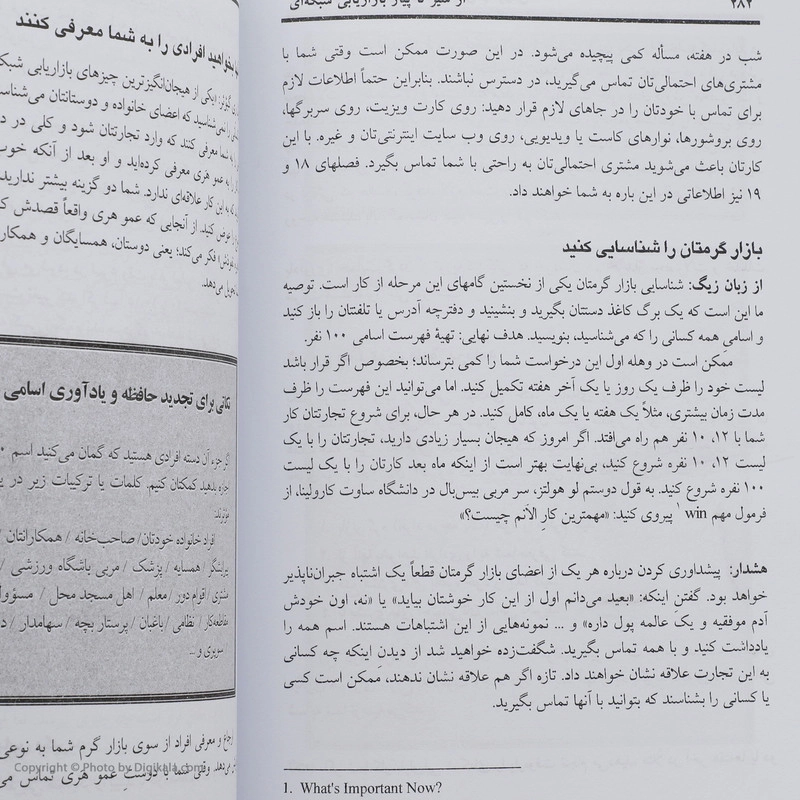 ۲۸۲ از سیر تا پیاز بازاریابی شبکه‌ای
شب در هفته، مسأله کمی پیچیده می‌شود. در این صورت ممکن است وقتی شما با
مشتری‌های احتمالی‌تان تماس می‌گیرید، در دسترس نباشند. بنابراین حتماً اطلاعات لازم
برای تماس با خودتان را در جاهای لازم قرار دهید: روی کارت ویزیت، روی سربرگها،
روی بروشورها، نوارهای کاست یا ویدیویی، روی وب سایت اینترنتی‌تان و غیره. با این
کارتان باعث می‌شوید مشتری احتمالی‌تان به راحتی با شما تماس بگیرد. فصلهای ۱۸ و
۱۹ نیز اطلاعاتی در این باره به شما خواهند داد.
بازار گرمتان را شناسایی کنید
از زبان زیگ: شناسایی بازار گرمتان یکی از نخستین گامهای این مرحله از کار است. توصیه
ما این است که یک برگ کاغذ دستتان بگیرید و بنشینید و دفترچه آدرس یا تلفنتان را باز کنید
و اسامی همه کسانی را که می‌شناسید، بنویسید. هدف نهایی: تهیهٔ فهرست اسامی ۱۰۰ نفر.
ممکن است در وهله اول این درخواست شما را کمی بترساند؛ بخصوص اگر قرار باشد
لیست خود را ظرف یک روز یا یک آخر هفته تکمیل کنید. اما می‌توانید این فهرست را ظرف
مدت زمان بیشتری، مثلاً یک هفته یا یک ماه، کامل کنید. در هر حال، برای شروع تجارتتان کار
شما با ۱۲، ۱۰ نفر هم راه می‌افتد. اگر امروز که هیجان بسیار زیادی دارید، تجارتتان را با یک
لیست ۱۲، ۱۰ نفره شروع کنید، بی‌نهایت بهتر است از اینکه ماه بعد کارتان را با یک لیست
۱۰۰ نفره شروع کنید. به قول دوستم لو هولتز، سر مربی بیس‌بال در دانشگاه ساوت کارولینا، از
فرمول مهم win ۱ پیروی کنید: «مهمترین کار الآنم چیست؟»
هشدار: پیشداوری کردن درباره هر یک از اعضای بازار گرمتان قطعاً یک اشتباه جبران‌ناپذیر
خواهد بود. گفتن اینکه: «بعید می‌دانم اول از این کار خوشتان بیاید» یا «نه، اون خودش
آدم موفقیه و یک عالمه پول داره» و ... نمونه‌هایی از این اشتباهات هستند. اسم همه را
یادداشت کنید و با همه تماس بگیرید. شگفت‌زده خواهید شد از دیدن اینکه چه کسانی
به این تجارت علاقه نشان خواهند داد. تازه اگر هم علاقه نشان ندهند، ممکن است کسی
یا کسانی را بشناسند که بتوانید با آنها تماس بگیرید.
1. What's Important Now?
بخواهید افرادی را به شما معرفی کنند
یکی از هیجان‌انگیزترین چیزهای بازاریابی شبکه
می‌شناسید که اعضای خانواده و دوستانتان می‌شناس
به شما معرفی کنند که وارد تجارتتان شود و کلی در د
را به عمو هری معرفی کرده‌اید و او بعد از آنکه خوب
به این کار علاقه‌ای ندارد. شما دو گزینه بیشتر ندارید
را عوض کنید. از آنجایی که عمو هری واقعاً قصدش ک
فکر می‌کند؛ یعنی دوستان، همسایگان و همکار
تحویل می‌دهد.
نکاتی برای تجدید حافظه و یادآوری اسامی
اگر جزء آن دسته افرادی هستید که گمان می‌کنید اسم
اجازه بدهید کمکتان کنیم. کلمات یا ترکیبات زیر در ی
مؤثرند:
افراد خانواده خودتان/ صاحب‌خانه / همکارانتان /
پیرایشگر / همسایه / پزشک / مربی باشگاه ورزشی /
مشتری / اقوام دور / معلم / اهل مسجد محل / مسؤول
مقاطعه‌کار / نظامی / باغبان / پرستار بچه / سهامدار / د
سوپری و ...
ارجاع و معرفی افراد از سوی بازار گرم شما به نوعی
وقتی شما با دوست عمو هری تماس می
Copyright © Photo by Digikala.com